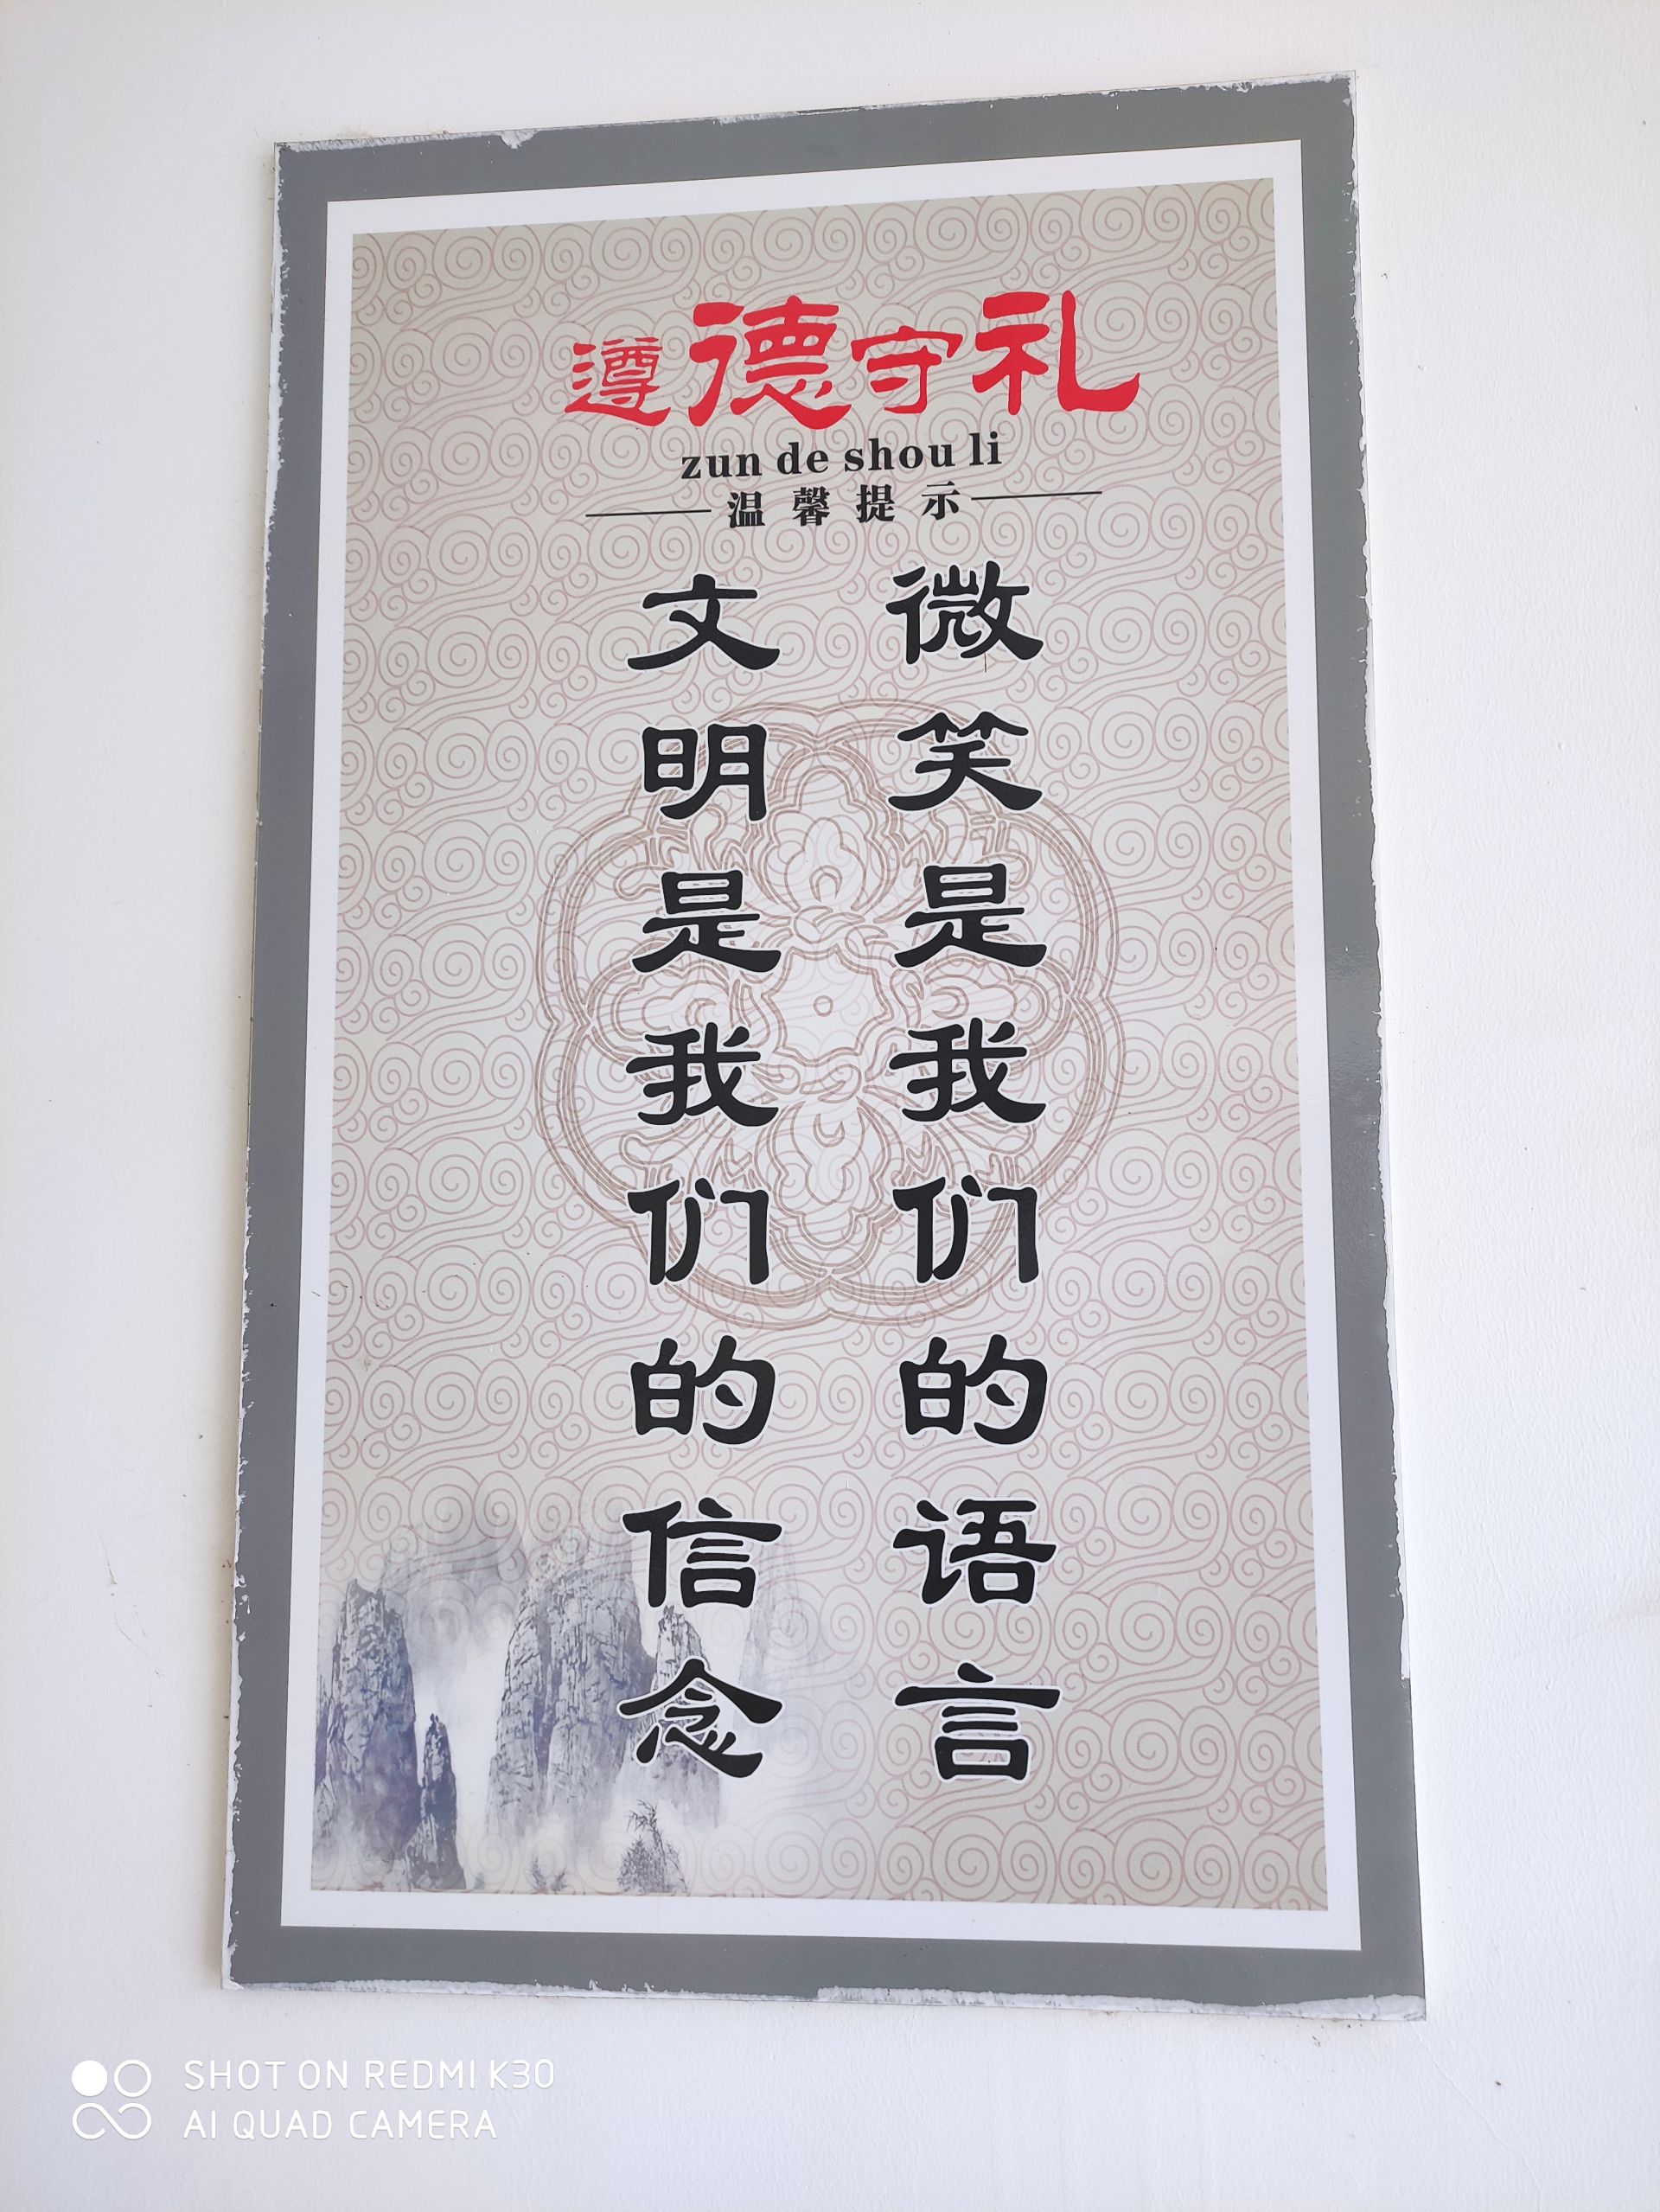 遵德守礼
zun de shou li
温馨提示
微笑是我们的语言
文明是我们的信念
SHOT ON REDMI K30
AI QUAD CAMERA